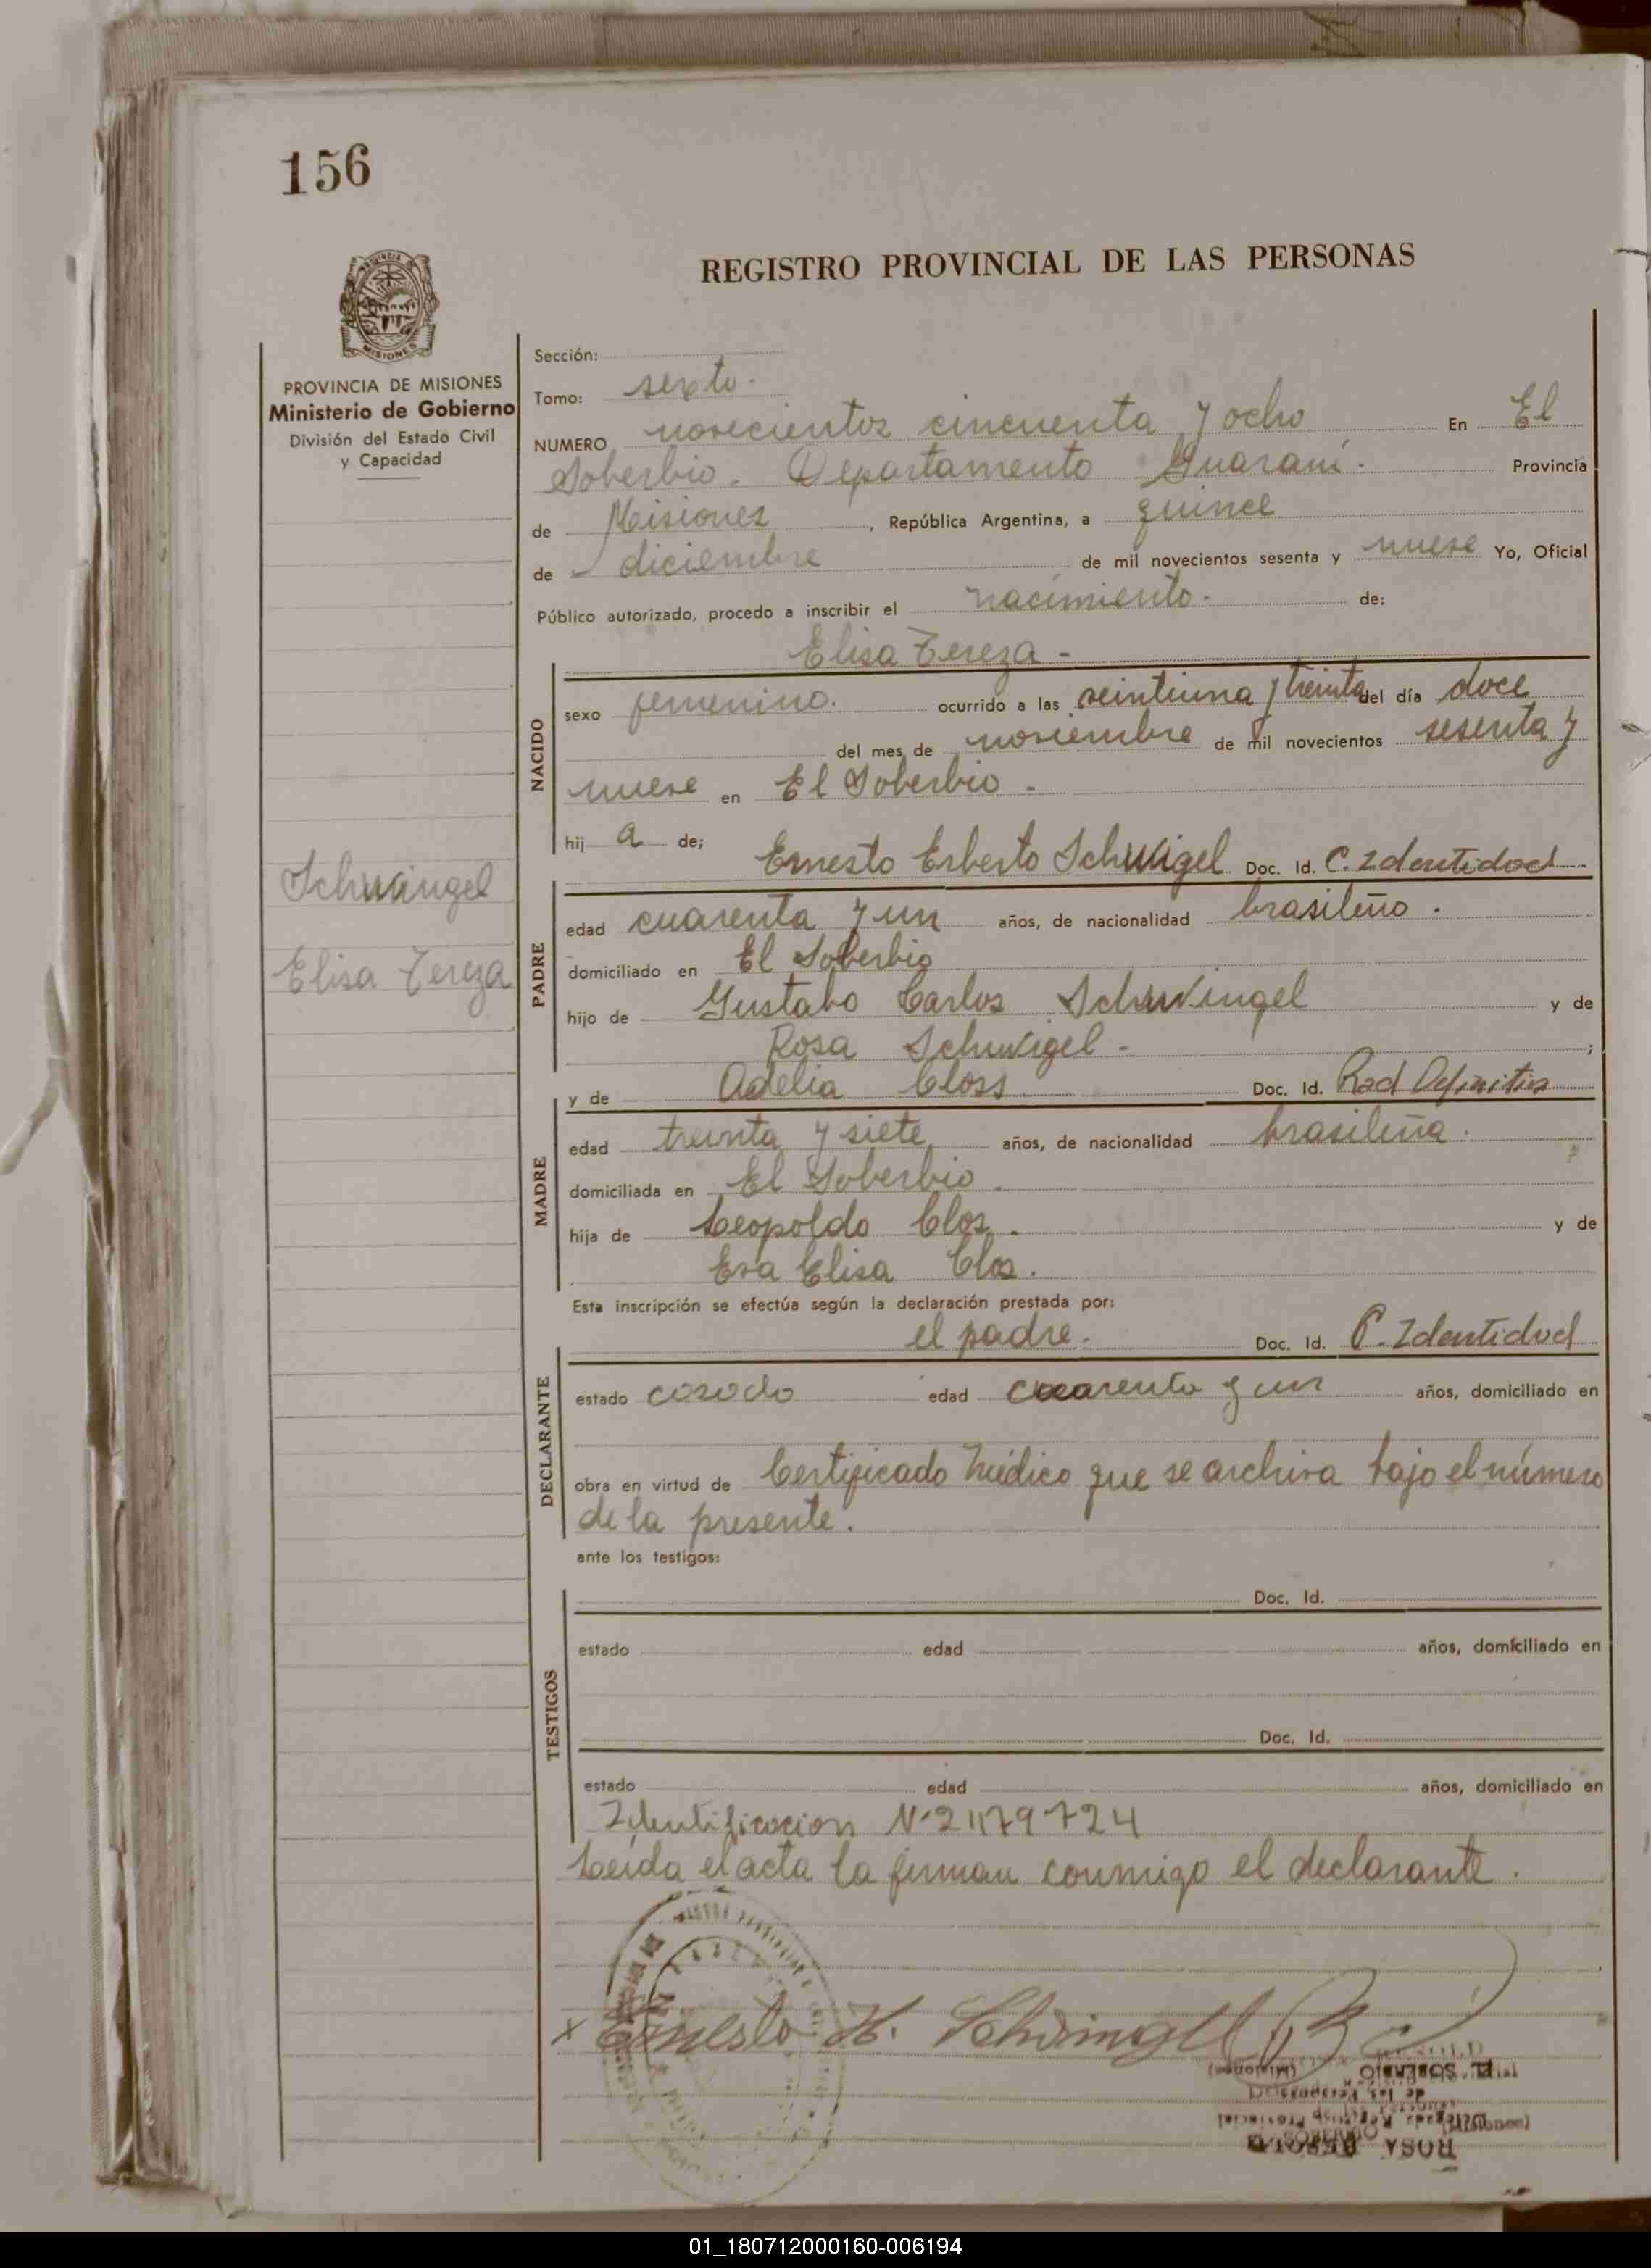 156
REGISTRO PROVINCIAL DE LAS PERSONAS
MISIONES
PROVINCIA DE MISIONES
Ministerio de Gobierno
División del Estado Civil
y Capacidad
Schwingel
Elisa Tereza
Sección:
Tomo: sexto.
NUMERO novecientos cincuenta y ocho En El
Soberbio. Departamento Guaraní. Provincia
de Misiones, República Argentina, a quince
de diciembre de mil novecientos sesenta y nueve Yo, Oficial
Público autorizado, procedo a inscribir el nacimiento. de:
Elisa Tereza -
NACIDO
sexo femenino. ocurrido a las veintiuna y treinta del día doce
del mes de noviembre de mil novecientos sesenta y
nueve en El Soberbio -
hij a de; Ernesto Erberto Schwigel Doc. Id. C. Identidad
PADRE
edad cuarenta y un años, de nacionalidad brasileño.
domiciliado en El Soberbio
hijo de Gustabo Carlos Schwingel y de
Rosa Schwigel - ;
y de Adelia Closs Doc. Id. Rad Definitiva
MADRE
edad treinta y siete años, de nacionalidad brasileña.
domiciliada en El Soberbio.
hija de Leopoldo Clos. y de
Eva Elisa Clos.
Esta inscripción se efectúa según la declaración prestada por:
el padre. Doc. Id. C. Identidad
DECLARANTE
estado casado edad cuarenta y un años, domiciliado en
obra en virtud de Certificado Médico que se archiva bajo el número
de la presente.
ante los testigos:
Doc. Id.
TESTIGOS
estado edad años, domiciliado en
Doc. Id.
estado edad años, domiciliado en
Identificacion
Leída el acta la firman conmigo el declarante.
x Ernesto H. Schwingel
EL SOBERBIO (Misiones)
de las Personas
Delegada Registro Provincial
ROSA
01_180712000160-006194